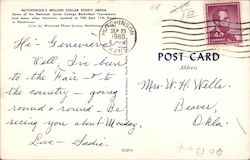 HUTCHINSON'S MILLION DOLLAR SPORTS ARENA
Home of the National Junior College Basketball Tournament
and many other functions. Located at 1700 East 11th Street
in Hutchinson.
HUTCHINSON
SEP 21
1960
Hi - Genevieve:
Well, I've been
to the Fair & to
the country - going
round & round. Be
seeing you about Monday.
Love - Sadie.
POST CARD
Address
Mrs. W. H. Wells
Beaver,
Okla.